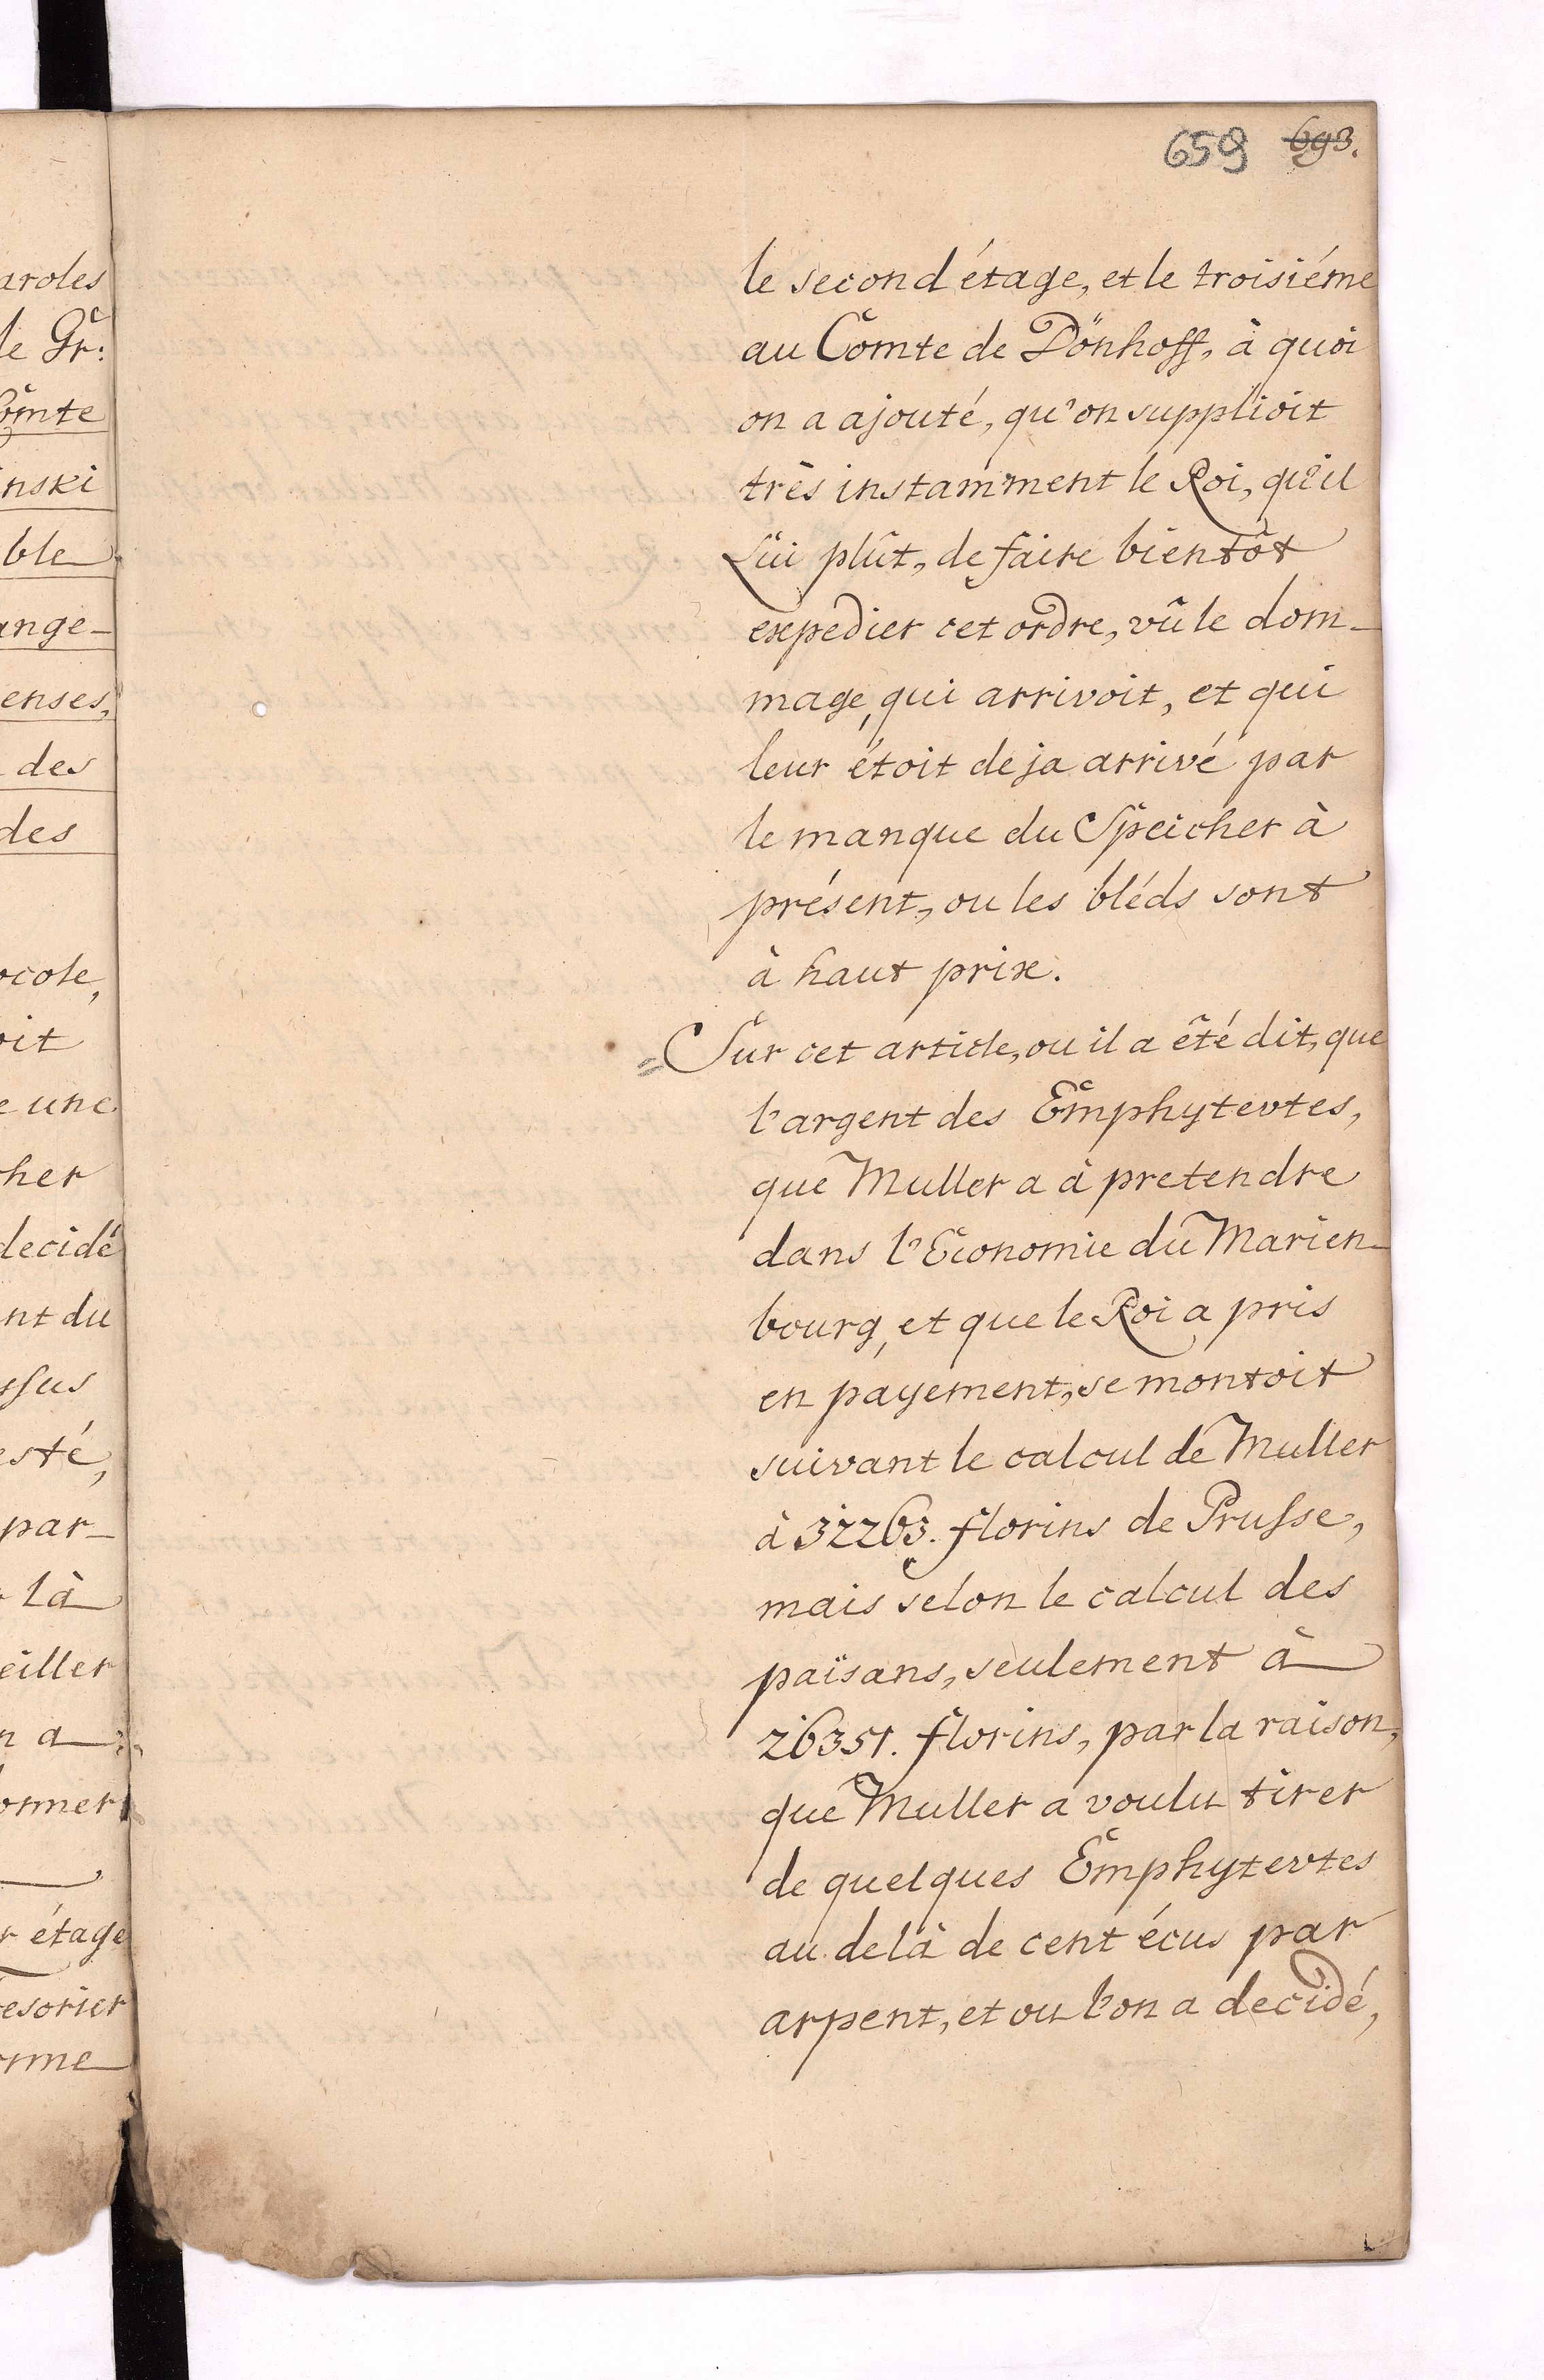 659 693.
le second étage, et le troisiéme
au Comte de Dönhoff, à quoi
on a ajouté, qu'on supplioit
très instamment le Roi, qu'il
Lui plût, de faire bientôt
expedier cet ordre, vû le dom-
mage, qui arrivoit, et qui
leur étoit deja arrivé par
le manque du Speicher à
présent, ou les bléds sont
à haut prix.
= Sur cet article, ou il a été dit, que
l'argent des Emphytevtes,
que Muller a à pretendre
dans l'Economie du Marien-
bourg, et que le Roi a pris
en payement, se montoit
suivant le calcul de Muller
à 32263. florins de Prusse,
mais selon le calcul des
païsans, seulement à
26351. florins, par la raison,
que Muller a voulu tirer
de quelques Emphytevtes
au delà de cent écus par
arpent, et ou l'on a decidé,
aroles
le Gr:
Comte
inski
ble
ange-
enses,
des
des
ocole,
oit
e une
cher
decidé
nt du
ssus
esté,
par-
là
eiller
n a
ormer
r étage
resorier
orme